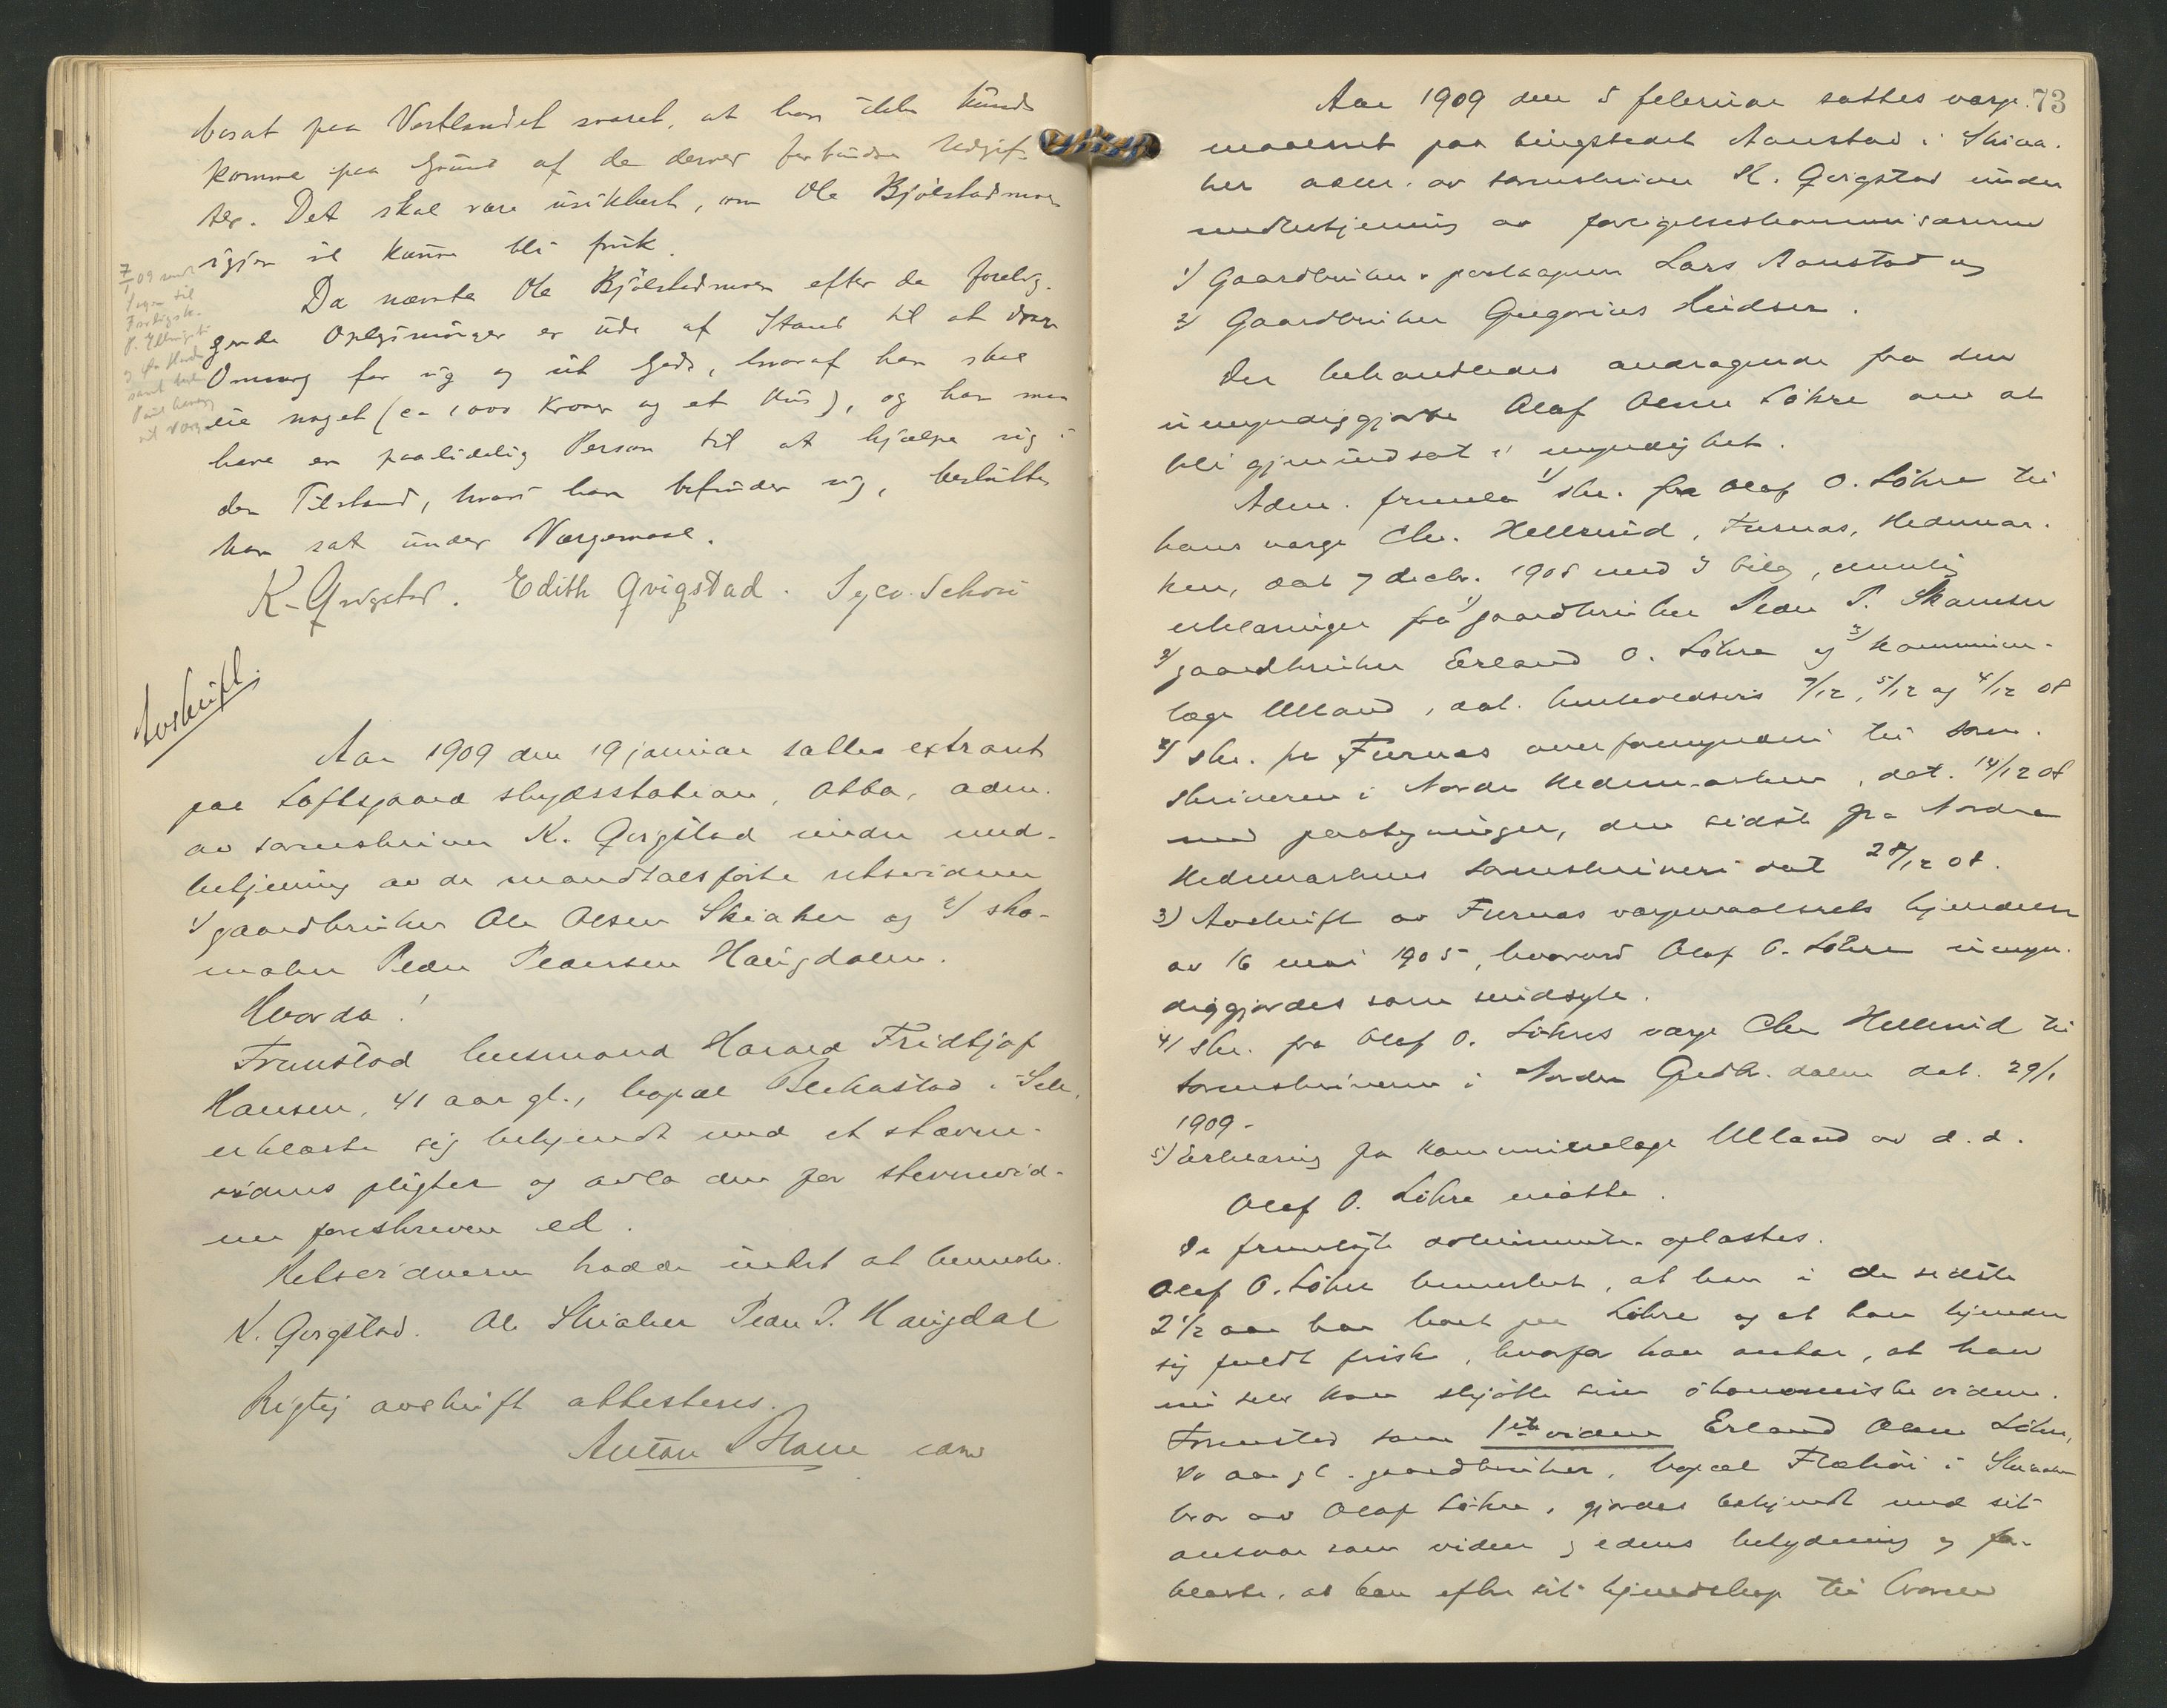 bosat paa Vestlandet svaret, at han ikke kunde
komme paa Grund af de dermed forbundne Udgif-
ter. Det skal være usikkert, om Ole Bjölstadmoen
igjen vil kunne bli frisk.
Da nævnte Ole Bjölstadmoen efter de forelig-
gende Oplysninger er ude af Stand til at drage
Omsorg for sig og sit Gods, hvoraf han skal
eie noget (ca 1000 Kroner og et Hus), og han maa
have en paalidelig Person til at hjælpe sig i
den Tilstand, hvori han befinder sig, besluttes
han sat under Værgemaal.
K. Qvigstad. Edith Qvigstad. Sycv. Schou
7/1 09 medd
Avskrift.
Aar 1909 den 19 januar sattes extraret
paa Loftsgaard skydsstation, Otta, adm.
av sorenskriver K. Qvigstad under med-
betjening av de mandtalsførte retsvidner
1) gaardbruker Ole Olsen Skiaker og 2) sko-
maker Peder Pedersen Haugdalen.
Hvorda!
Fremstod husmand Harald Fridtjof
Hansen, 41 aar gl., bopæl Blekastad i Sell,
erklærte sig bekjendt med et stævne-
vidnes pligter og avla den for stevnevid-
ner foreskrevne ed.
Retsvidnerne hadde intet at bemerke.
K. Qvigstad. Ole Skiaker Peder P. Haugdal
Rigtig avskrift attesteres.
Anton
73
Aar 1909 den 5 februar sattes verge-
maalsret paa tingstedet Aanstad i Skiaa-
ker adm. av sorenskriver K. Qvigstad under
medbetjening av forligelseskommisærerne
1) Gaardbruker & postaapner Lars Aanstad og
2) Gaardbruker Gregorius Heidser.
Der behandledes andragende fra den
umyndiggjorte Olaf Olsen Lökre om at
bli gjenindsat i myndighet.
Adm. fremla 1) skr. fra Olaf O. Lökre til
hans verge Chr. Hellerud, Furnes, Hedemar-
ken, dat 7 decbr. 1908 med 3 bilag, nemlig
erklæringer fra 1) gaardbruker Peder P. Skamsar
2) gaardbruker Erland O. Lökre og 3) kommune-
læge Ulland, dat. henholdsvis 7/12, 5/12 og 4/12 08
2) skr. fra Furnes overformynderi til soren-
skriveren i Nordre Hedemarken, dat. 14/12 08
med paategninger, den sidste fra Nordre
Hedemarkens sorenskriveri dat 28/12 08.
3) Avskrift av Furnes vergemaalsrets kjendelse
av 16 mai 1905, hvorved Olaf O. Lökre umyn-
diggjordes som sindsyk.
4) Skr. fra Olaf O. Lökres verge Chr Hellerud til
sorenskriveren i Nordre Gudbr. dalen dat. 29/1
1909 -
5) Erklæring fra kommunelæge Ulland av d. d.
Olaf O. Lökre mötte.
De fremlagte dokumenter oplæstes.
Olaf O. Lökre bemerket, at han i de sidste
2 1/2 aar har boet paa Lökre og at han kjender
sig fuldt frisk, hvorfor han antar, at han
nu selv kan skjötte sine ökonomiske
Fremsted som 1ste vidne Erland Olsen Lökre,
aar gl. gaardbruker, bopæl i Skiaaker
bror av Olaf Lökre, gjordes bekjendt med sit
ansvar som vidne og edens betydning og for-
klarte, at han efter sit kjendskap til broren